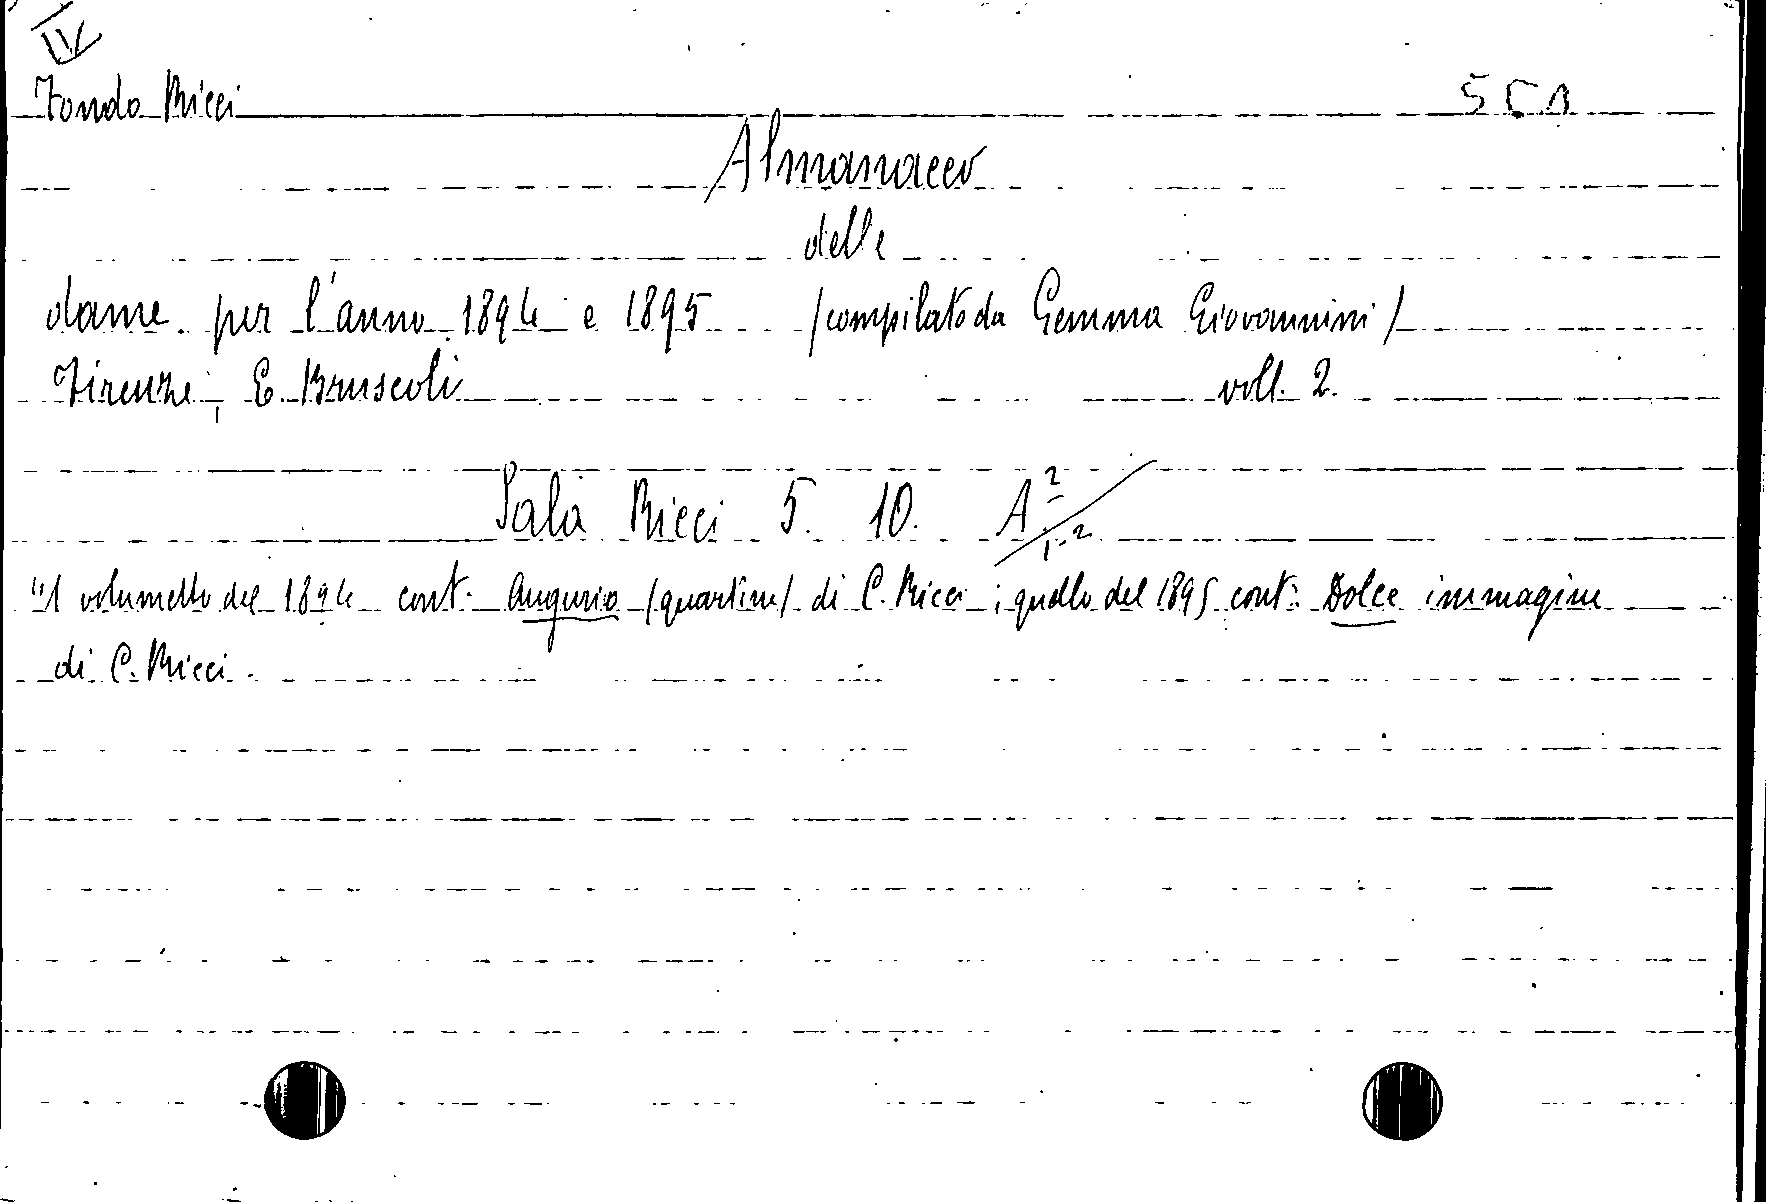 IV
Fondo Ricci
Almanacco
delle
dame per l'anno 1894 e 1895 /compilato da Gemma Giovannini/
Firenze, E. Bruscoli voll. 2.
Sala Ricci 5. 10. A 2/1-2
Il volumetto del 1894 cont. Augurio /quartine/ di C. Ricci; quello del 1895 cont: Dolce immagine
di C. Ricci.